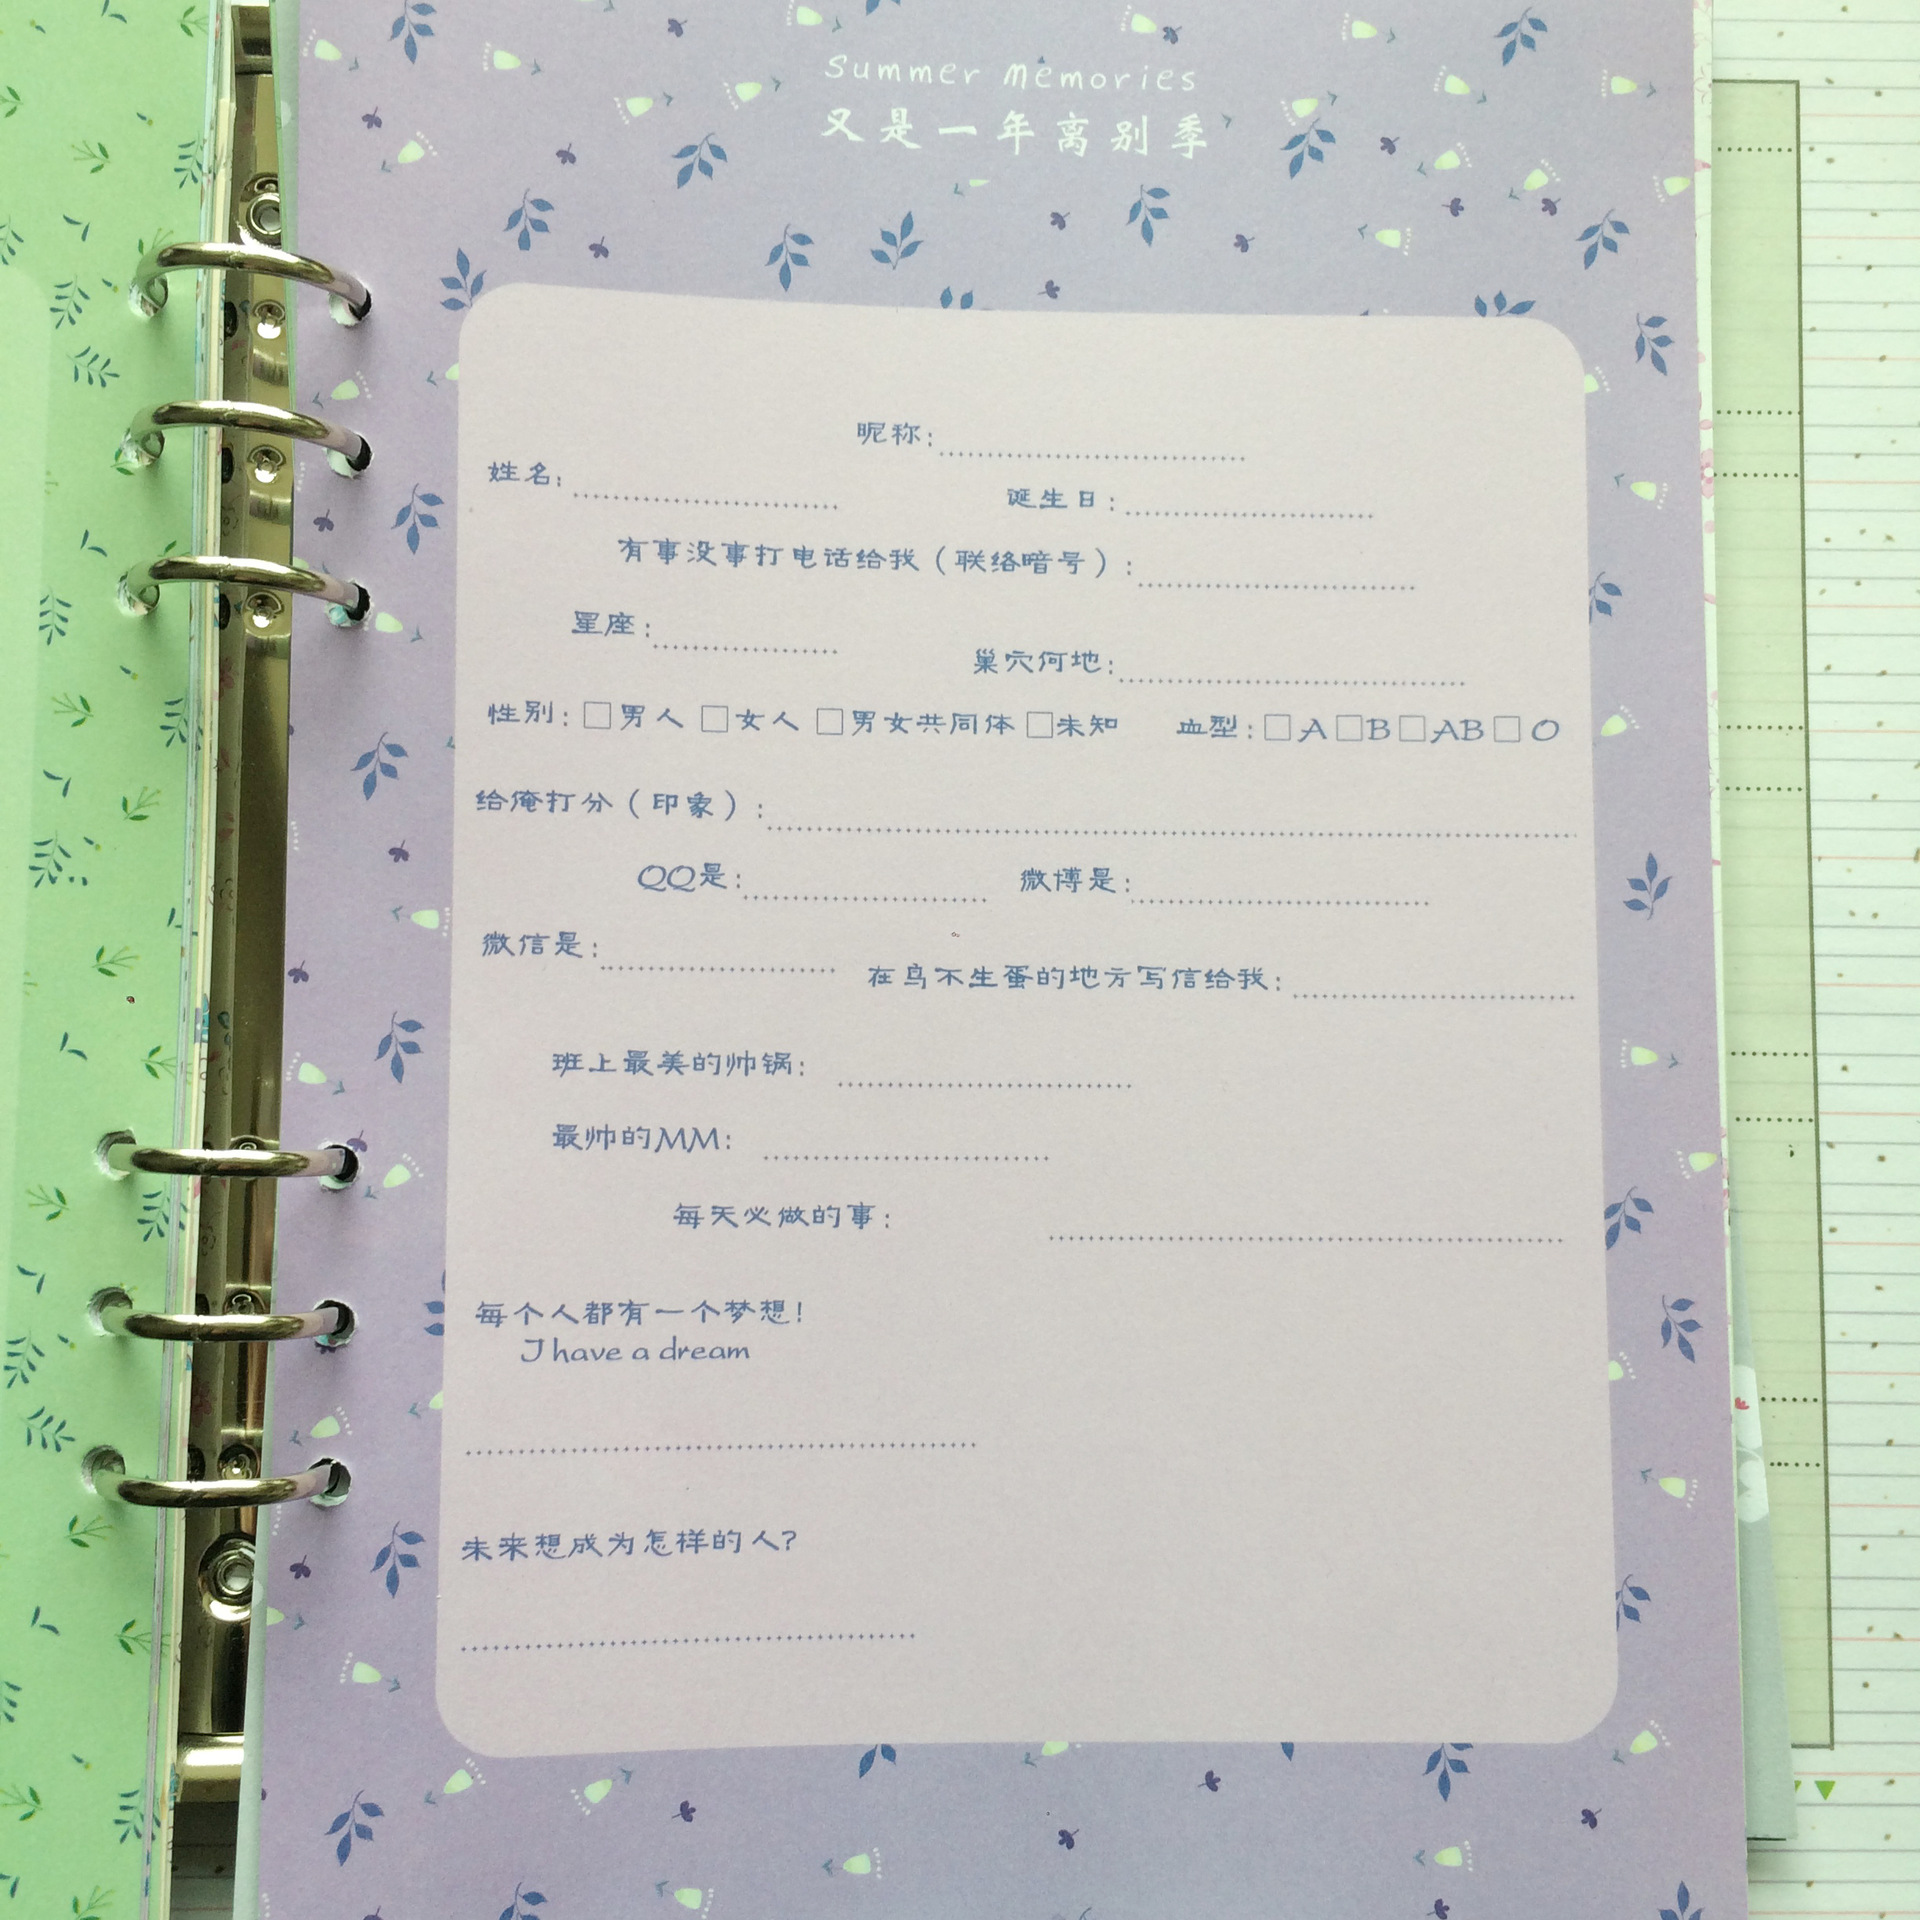 Summer memories
又是一年离别季
昵称:
姓名:
诞生日:
有事没事打电话给我(联络暗号):
星座:
巢穴何地:
性别:□男人 □女人 □男女共同体 □未知 血型:□A□B□AB□O
给俺打分(印象):
QQ是: 微博是:
微信是:
在鸟不生蛋的地方写信给我:
班上最美的帅锅:
最帅的MM:
每天必做的事:
每个人都有一个梦想!
I have a dream
未来想成为怎样的人?